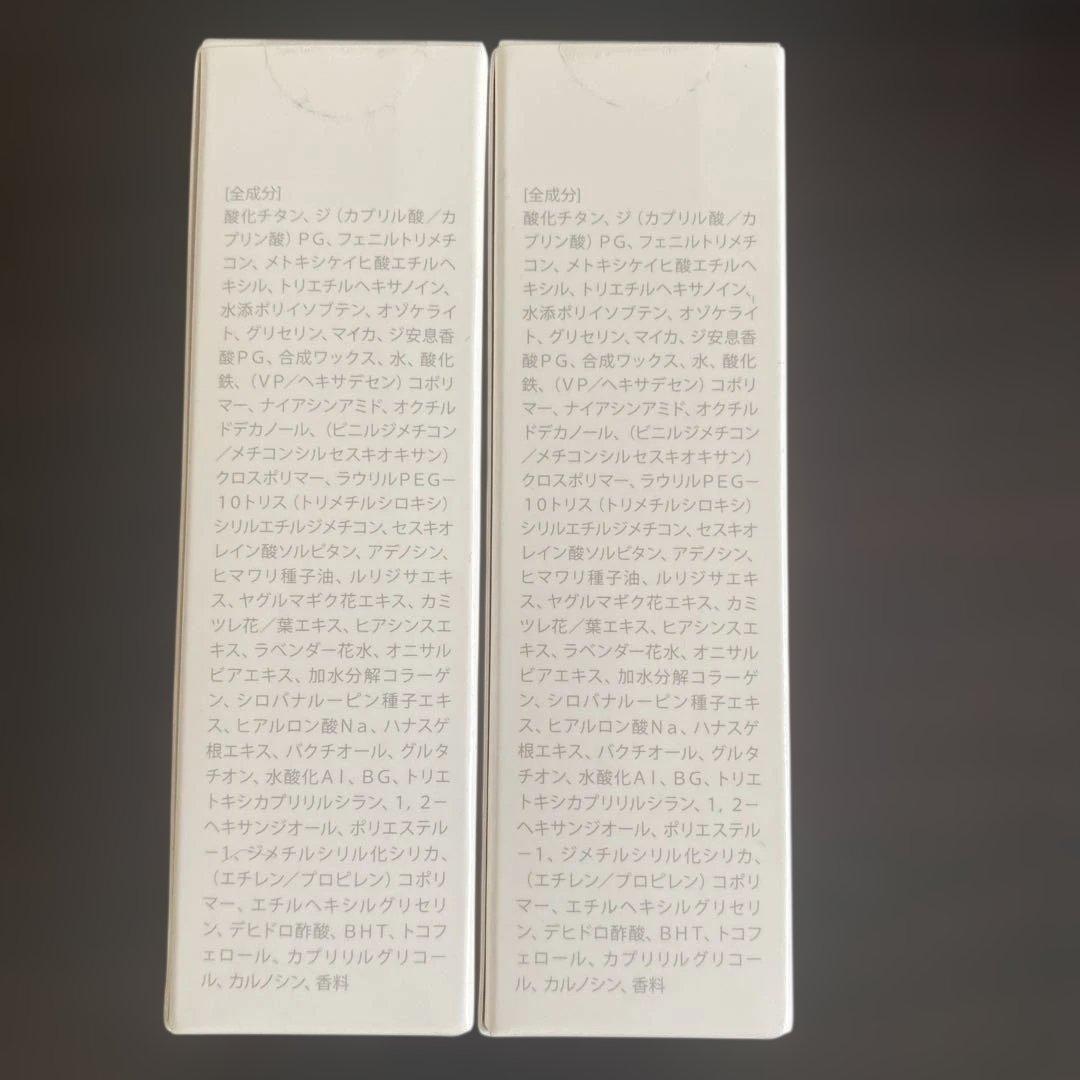 [全成分]
酸化チタン、ジ（カプリル酸／カ
プリン酸）ＰＧ、フェニルトリメチ
コン、メトキシケイヒ酸エチルヘ
キシル、トリエチルヘキサノイン、
水添ポリイソブテン、オゾケライ
ト、グリセリン、マイカ、ジ安息香
酸ＰＧ、合成ワックス、水、酸化
鉄、（ＶＰ／ヘキサデセン）コポリ
マー、ナイアシンアミド、オクチル
ドデカノール、（ビニルジメチコン
／メチコンシルセスキオキサン）
クロスポリマー、ラウリルＰＥＧ－
１０トリス（トリメチルシロキシ）
シリルエチルジメチコン、セスキオ
レイン酸ソルビタン、アデノシン、
ヒマワリ種子油、ルリジサエキ
ス、ヤグルマギク花エキス、カミ
ツレ花／葉エキス、ヒアシンスエ
キス、ラベンダー花水、オニサル
ビアエキス、加水分解コラーゲ
ン、シロバナルーピン種子エキ
ス、ヒアルロン酸Ｎａ、ハナスゲ
根エキス、バクチオール、グルタ
チオン、水酸化ＡＩ、ＢＧ、トリエ
トキシカプリリルシラン、１，２－
ヘキサンジオール、ポリエステル
－１、ジメチルシリル化シリカ、
（エチレン／プロピレン）コポリ
マー、エチルヘキシルグリセリ
ン、デヒドロ酢酸、ＢＨＴ、トコフ
ェロール、カプリリルグリコー
ル、カルノシン、香料
[全成分]
酸化チタン、ジ（カプリル酸／カ
プリン酸）ＰＧ、フェニルトリメチ
コン、メトキシケイヒ酸エチルヘ
キシル、トリエチルヘキサノイン、
水添ポリイソブテン、オゾケライ
ト、グリセリン、マイカ、ジ安息香
酸ＰＧ、合成ワックス、水、酸化
鉄、（ＶＰ／ヘキサデセン）コポリ
マー、ナイアシンアミド、オクチル
ドデカノール、（ビニルジメチコン
／メチコンシルセスキオキサン）
クロスポリマー、ラウリルＰＥＧ－
１０トリス（トリメチルシロキシ）
シリルエチルジメチコン、セスキオ
レイン酸ソルビタン、アデノシン、
ヒマワリ種子油、ルリジサエキ
ス、ヤグルマギク花エキス、カミ
ツレ花／葉エキス、ヒアシンスエ
キス、ラベンダー花水、オニサル
ビアエキス、加水分解コラーゲ
ン、シロバナルーピン種子エキ
ス、ヒアルロン酸Ｎａ、ハナスゲ
根エキス、バクチオール、グルタ
チオン、水酸化ＡＩ、ＢＧ、トリエ
トキシカプリリルシラン、１，２－
ヘキサンジオール、ポリエステル
－１、ジメチルシリル化シリカ、
（エチレン／プロピレン）コポリ
マー、エチルヘキシルグリセリ
ン、デヒドロ酢酸、ＢＨＴ、トコフ
ェロール、カプリリルグリコー
ル、カルノシン、香料